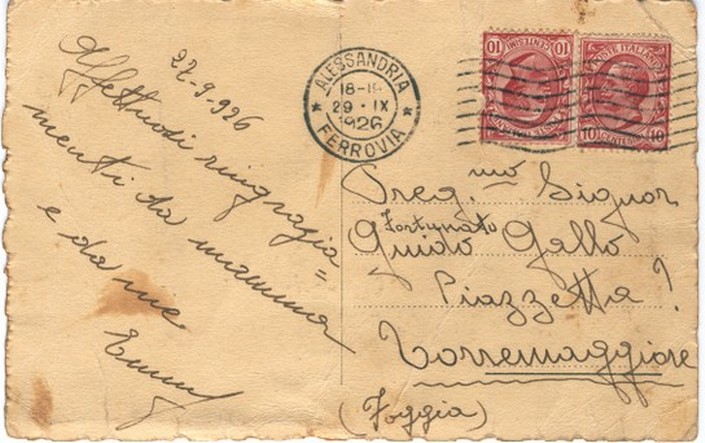 27-9-926
Affettuosi ringrazia=
menti da mamma
e da me
Emmy
ALESSANDRIA
18-19
29 · IX
1926
FERROVIA
10 CENTESIMI 10
POSTE ITALIANE
10 10
Preg.mo Signor
Fortunato
Guido Gallo
Piazzetta ?
Torremaggiore
(Foggia)